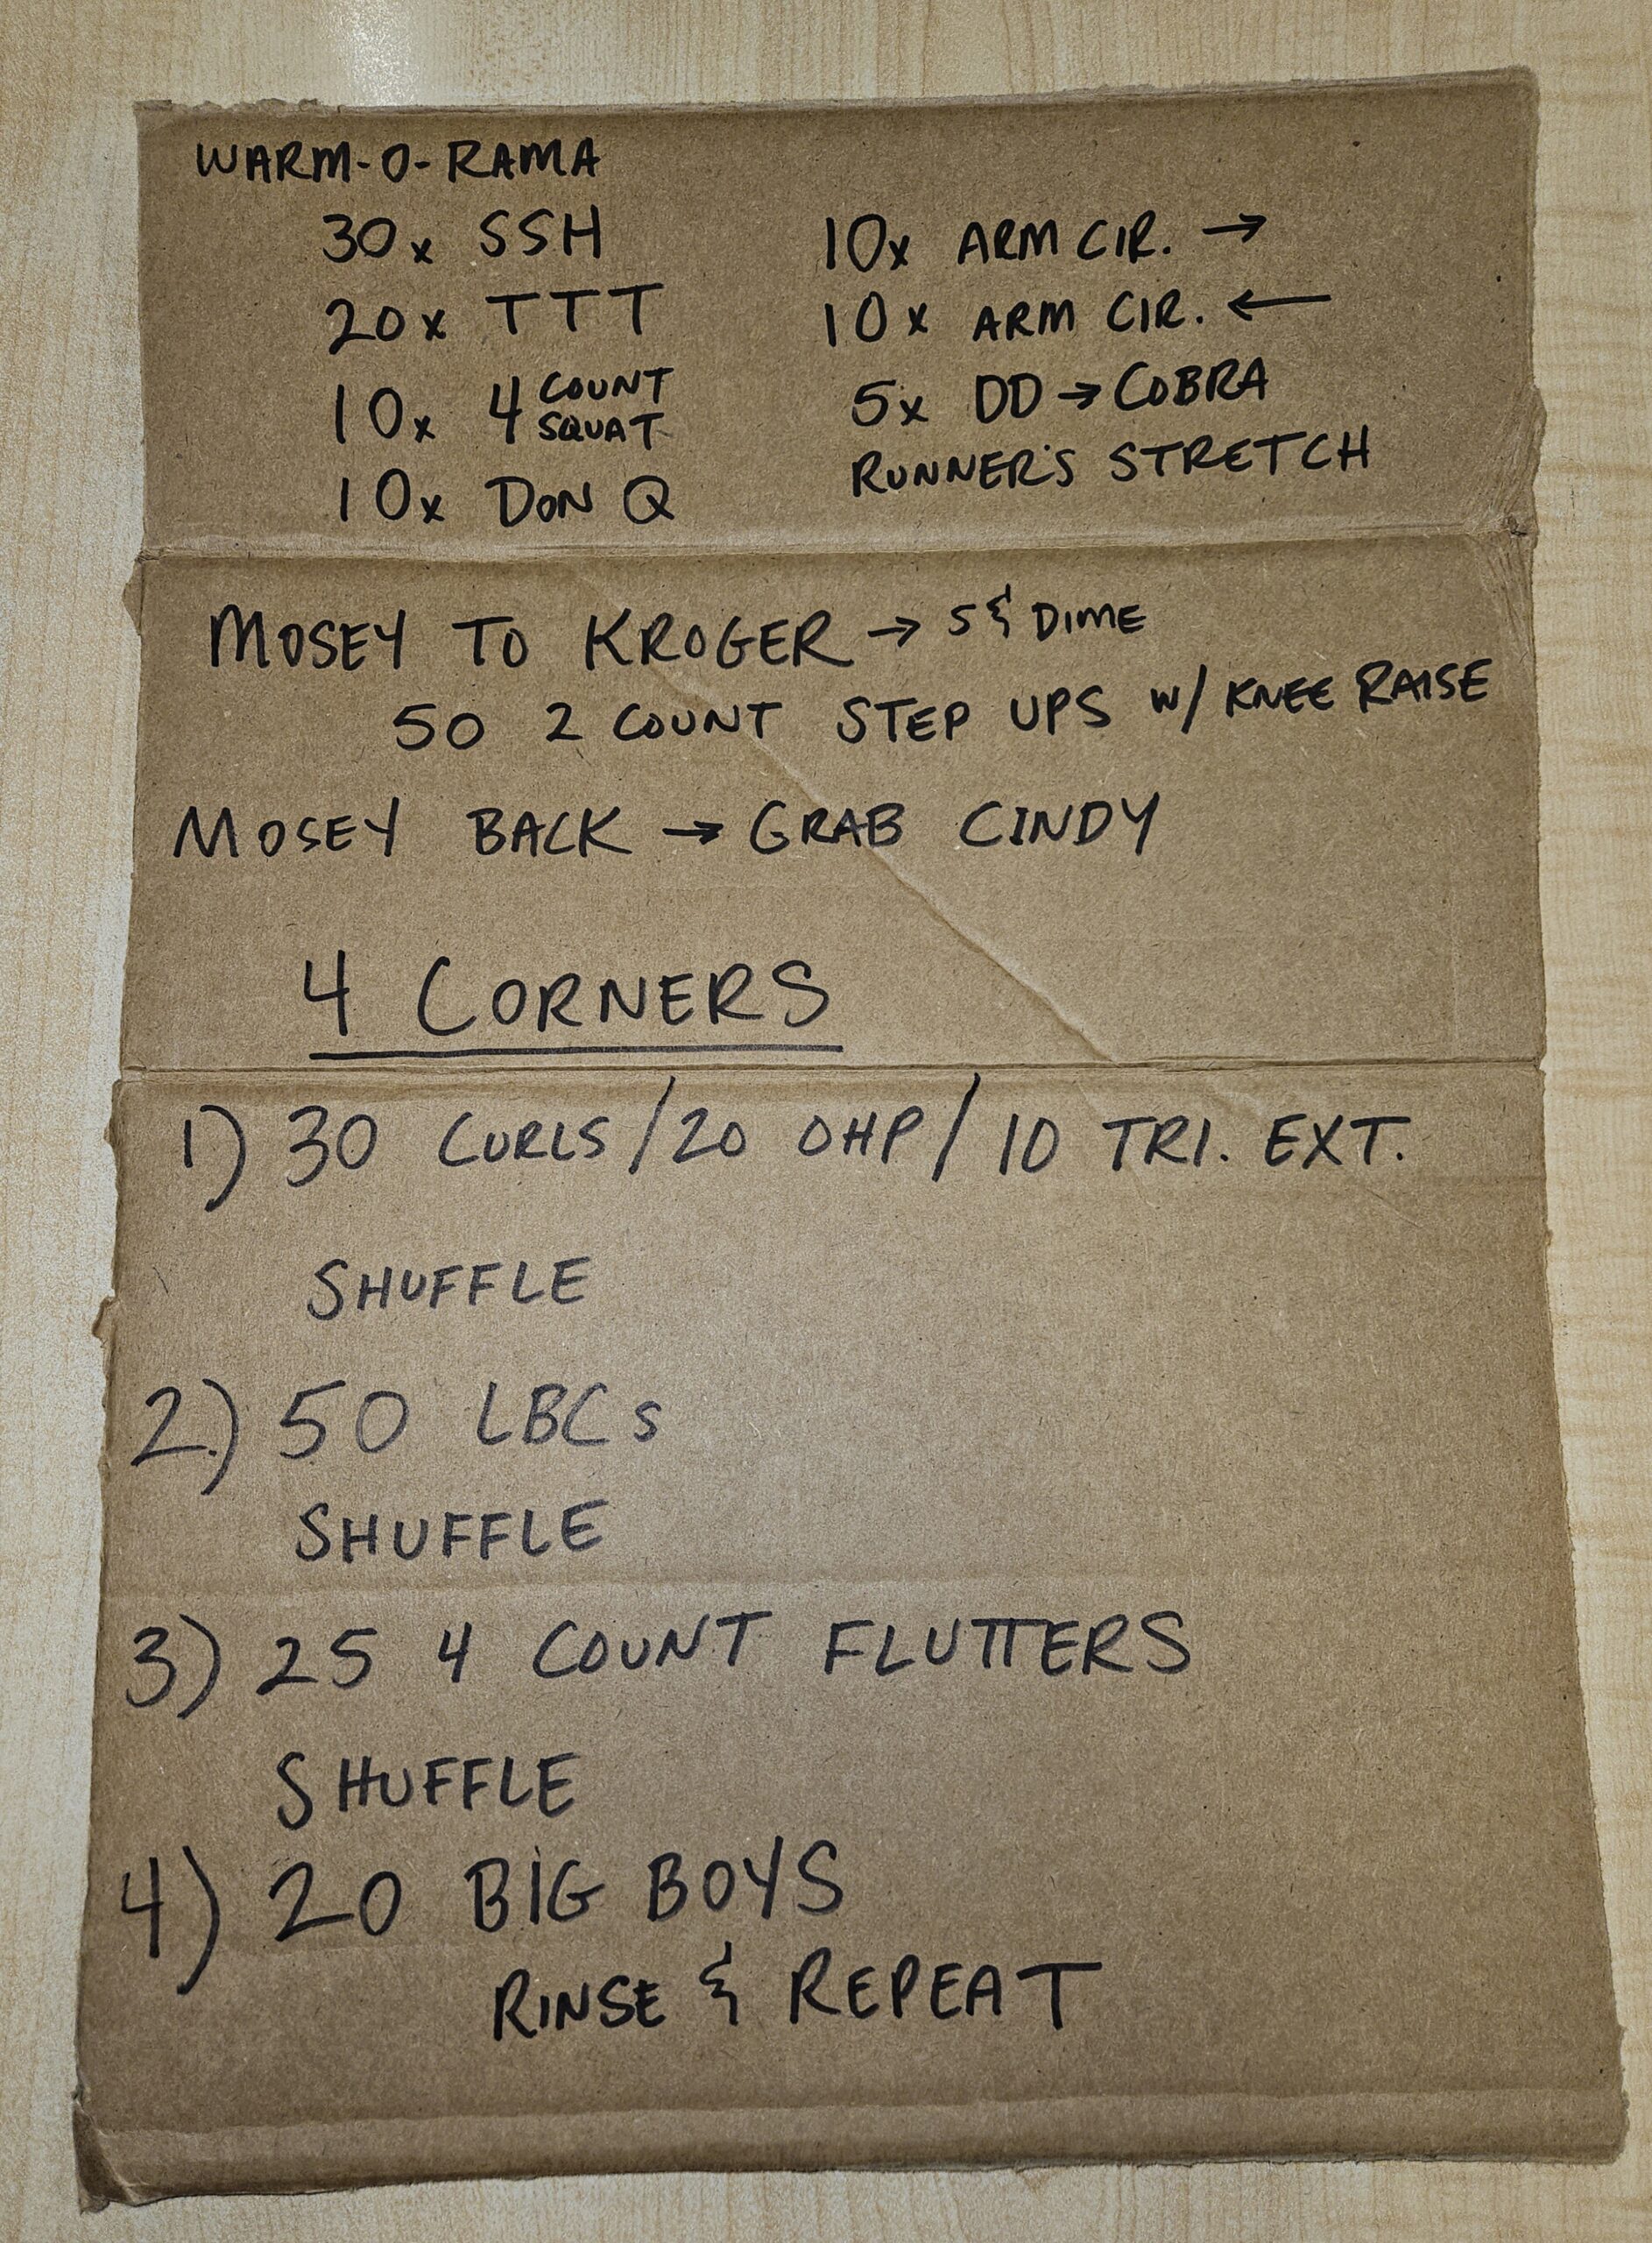 WARM-O-RAMA
30x SSH
20x TTT
10x 4 COUNT SQUAT
10x DON Q
10x ARM CIR. →
10x ARM CIR. ←
5x DD → COBRA
RUNNER'S STRETCH
MOSEY TO KROGER → 5 & DIME
50 2 COUNT STEP UPS W/ KNEE RAISE
MOSEY BACK → GRAB CINDY
4 CORNERS
1) 30 CURLS / 20 OHP / 10 TRI. EXT.
SHUFFLE
2.) 50 LBCs
SHUFFLE
3) 25 4 COUNT FLUTTERS
SHUFFLE
4) 20 BIG BOYS
RINSE & REPEAT